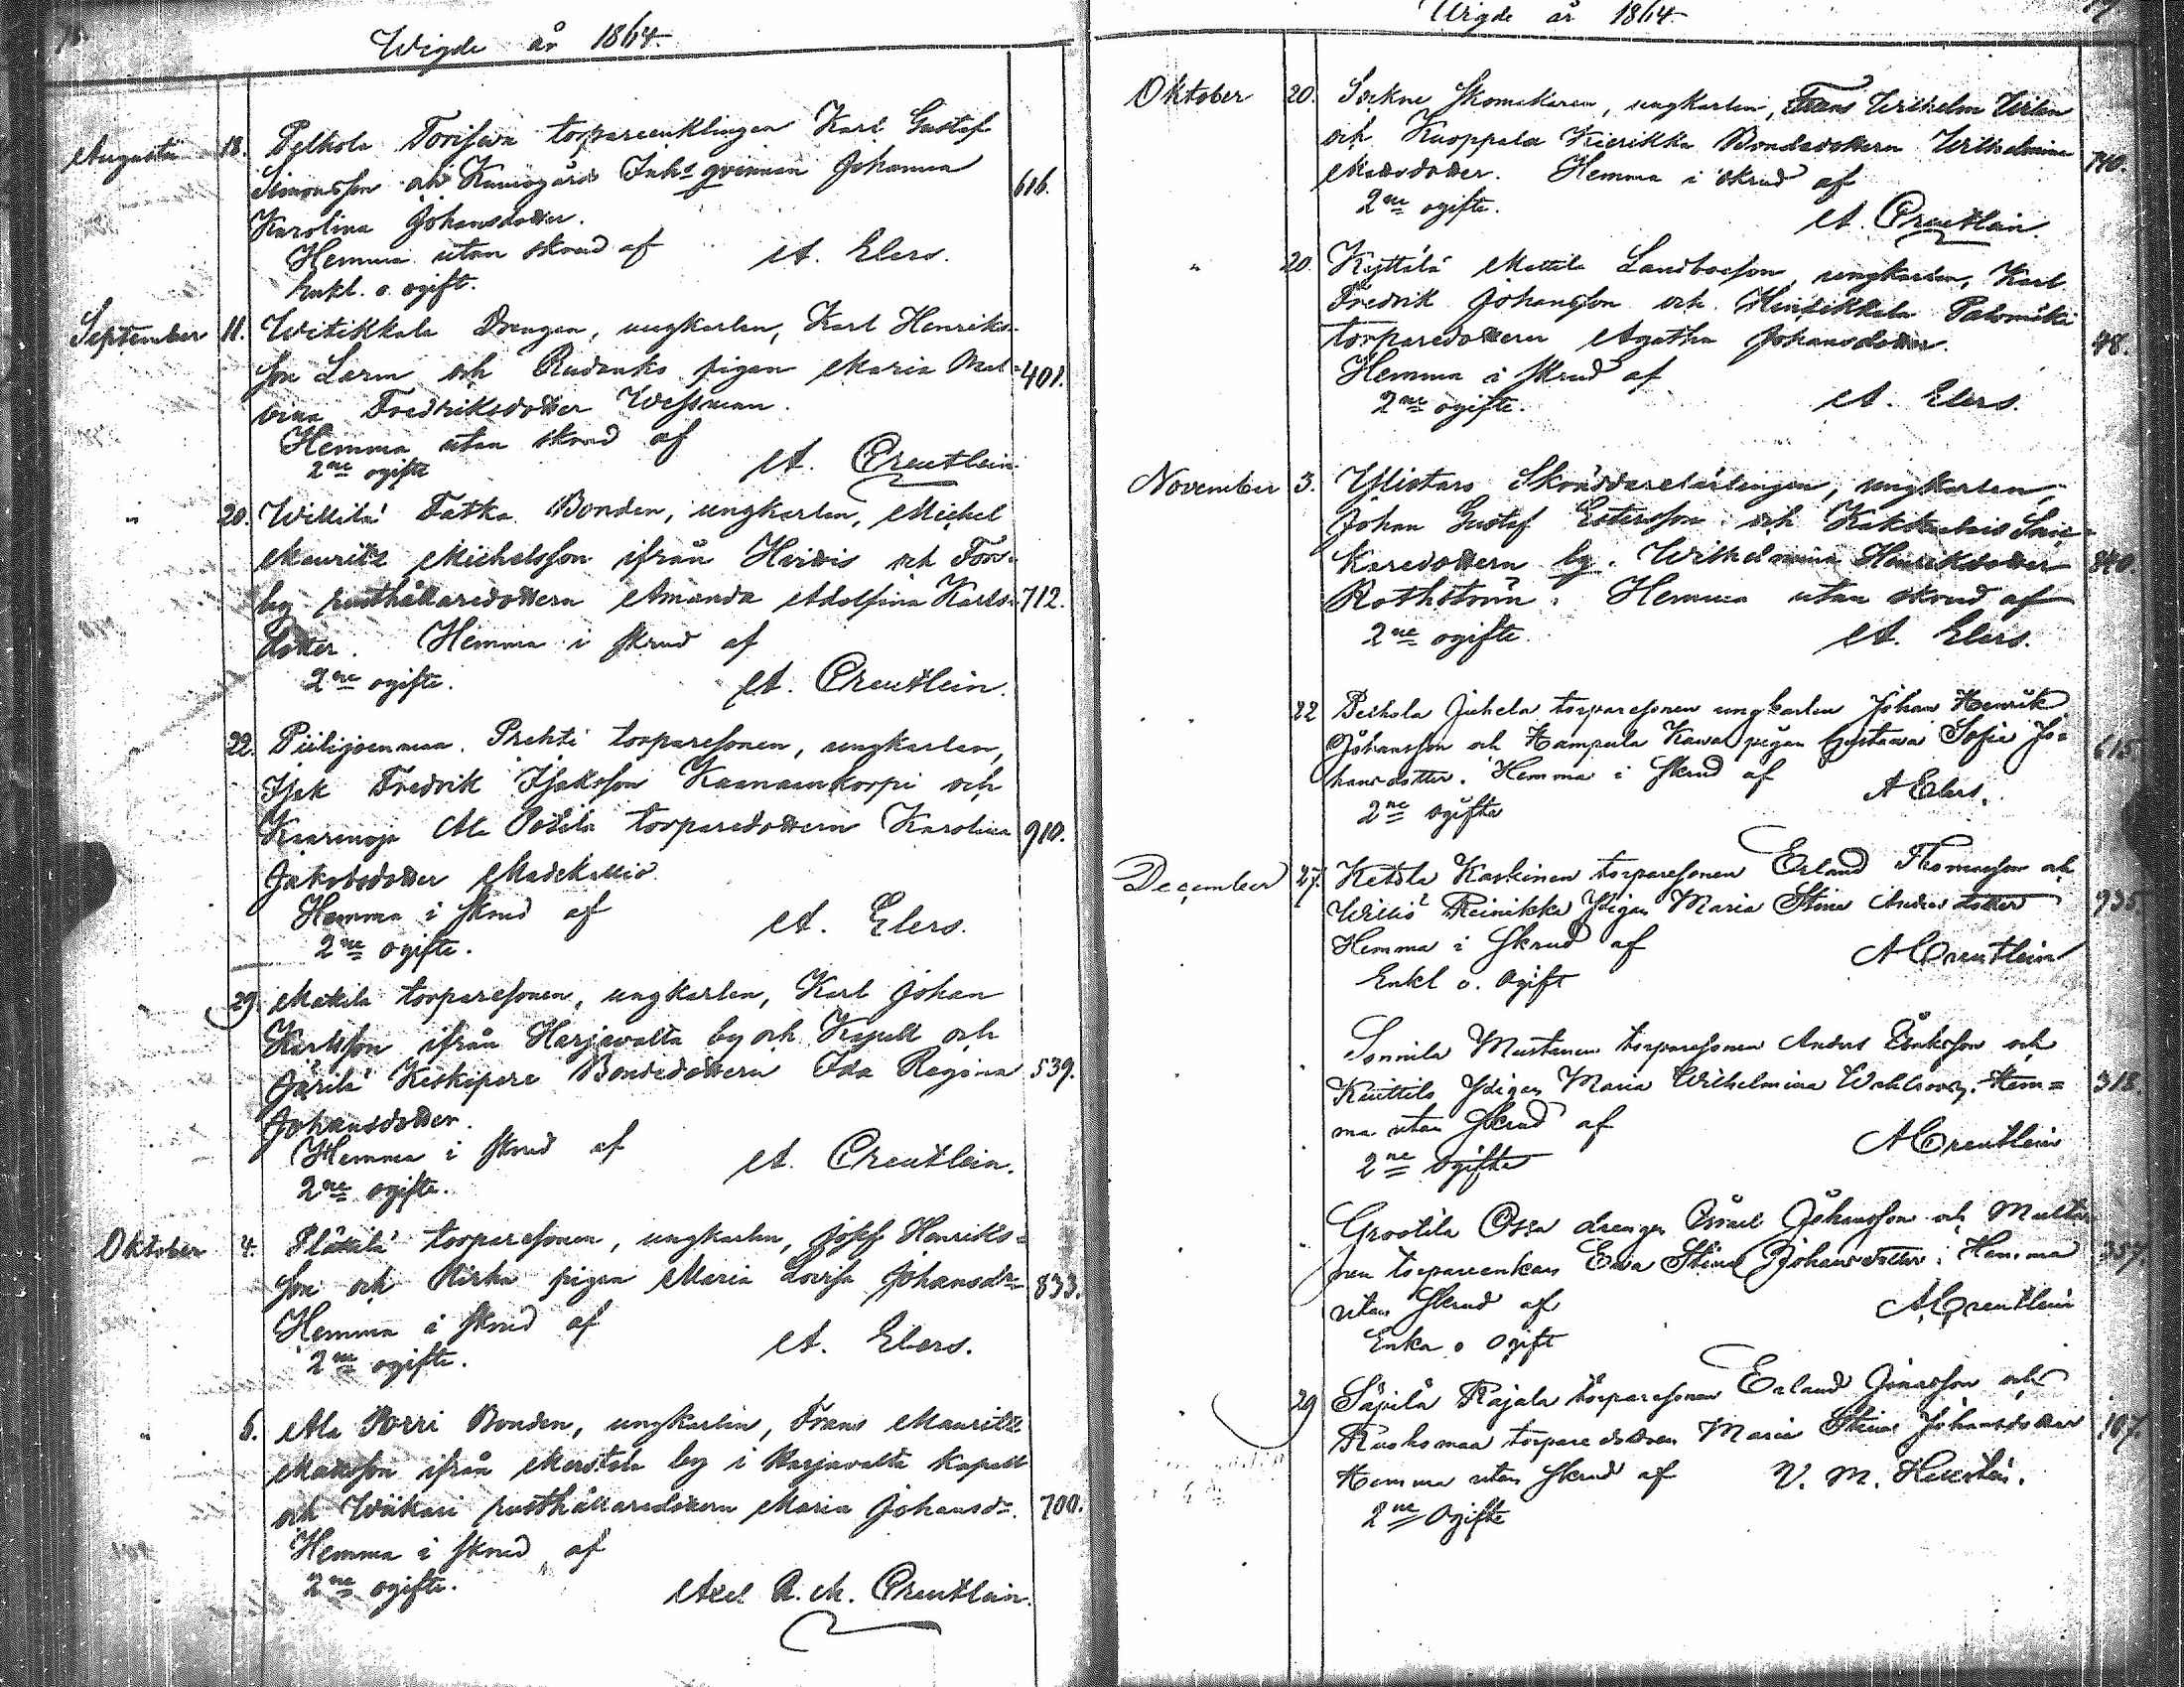 Wigde år 1864.
Augusti 18. Pelhola Torisewa torpareenklingen Karl Gustaf
Simonsson och Kumogårds Inhs qvinnan Johanna 616.
Karolina Johansdotter.
Hemma utan skrud af A. Elers.
Enkl. o. ogift.
September 11. Witikkala Drengen, ungkarlen, Karl Henriks-
son Larm och Rudanko pigan Maria Mal- 401.
vina Fredriksdotter Wessman.
Hemma utan skrud af
2ne ogifte A. Creutlein.
" 20. Willilä Tatka Bonden, ungkarlen, Michel
Mauritz Michelsson ifrån Hvittis och Tors-
by rusthållaredottern Amanda Adolfina Karls- 712.
dotter. Hemma i skrud af
2ne ogifte. A. Creutlein.
22. Piilijoenmaa Prehti torparesonen, ungkarlen,
Isak Fredrik Isaksson Kaanaankorpi och
Kaarenoja Ala Potila torparedottern Karolina 910.
Jakobsdotter Madekallio
Hemma i skrud af A. Elers.
2ne ogifte.
29. Makila torparesonen, ungkarlen, Karl Johan
Karlsson ifrån Harjavalta by och Kapell och
Järilä Keskipere Bondedottern Ida Regina 539.
Johansdotter.
Hemma i skrud af A. Creutlein.
2ne ogifte.
Oktober 4. torparesonen, ungkarlen, Josef Henriks-
son och pigan Maria Lovisa Johansdr 833.
Hemma i skrud af A. Elers.
2ne ogifte.
" 6. Ala Torri Bonden, ungkarlen, Frans Mauritz
Matsson ifrån Merstola by i Harjavalta Kapell
och Wäkari rusthållaredottern Maria Johansdr. 700.
Hemma i skrud af
2ne ogifte. Axel R. M. Creutlein.
Wigde år 1864.
Oktober 20. Sockne Skomakaren, ungkarlen, Frans Wilhelm Wirlen
och Kuoppala Kierikka Bondedottern Wilhelmina 740.
Matsdotter. Hemma i skrud af
2ne ogifte. A. Creutlein.
" 20. Kyttälä Mattila Landboeson, ungkarlen, Karl
Fredrik Johansson och Heinikkala Palomäki
torparedottern Agatha Johansdotter. 48.
Hemma i skrud af
2ne ogifte. A. Elers.
November 3. Ylistaro Skräddarelärlingen, ungkarlen,
Johan Gustaf Estersson och Kakkulais
karedottern by. Wilhelmina Henriksdotter 840.
Rothström. Hemma utan skrud af
2ne ogifte. A. Elers.
22 Peihola Juhela torparesonen ungkarlen Johan Henrik
Johansson och Kampula pigan Gustava Sofia Jo- 615.
hansdotter. Hemma i skrud af
2ne ogifta A Elers.
December 27. Ketola Koskinen torparesonen Erland Thomasson och
Williö Reinikka Pigan Maria Stina Andersdotter 935.
Hemma i skrud af A Creutlein
Enkl o. Ogift
Sonnila Mustanen torparesonen Anders Eriksson och
Kiuttils Pigan Maria Wilhelmina . Hem= 318.
ma utan skrud af
2ne Ogifte A Creutlein
Grootila Ossa drengen Israel Johansson och Multa
nen torpareenkan Eva Stina Johansdotter. Hemma 357.
utan skrud af A. Creutlein
Enka o Ogift
29 Säpilä Rajala torparesonen Erland Jonasson och
Ruohomaa torparedottren Maria Stina Johansdotter 107.
Hemma utan skrud af V. M.
2ne Ogifte